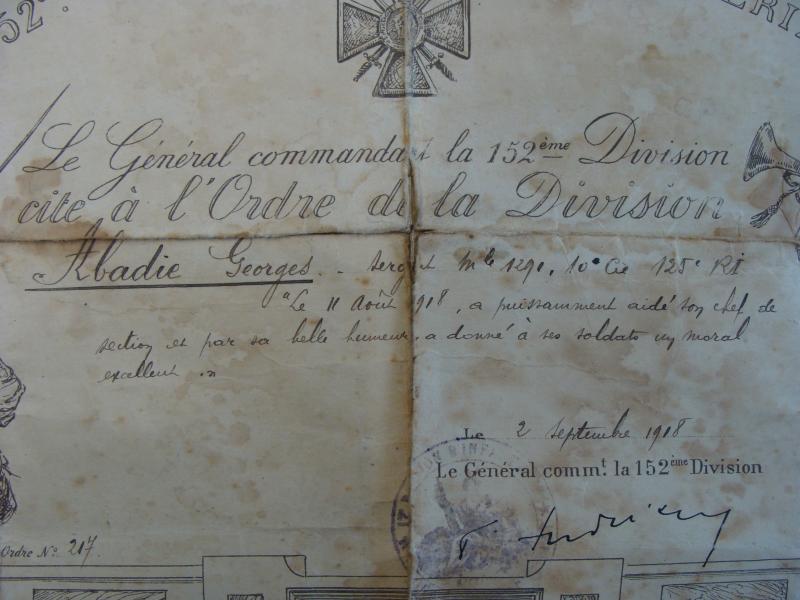 152e
Le Général commandant la 152ème Division
cite à l'Ordre de la Division
Abadie Georges - Sergent Mle 1291. 10e Cie 125e RI
"Le 11 Août 1918, a puissamment aidé son chef de
section et par sa belle humeur, a donné à ses soldats un moral
excellent."
Le 2 septembre 1918
Le Général commt. la 152ème Division
Ordre No. 217